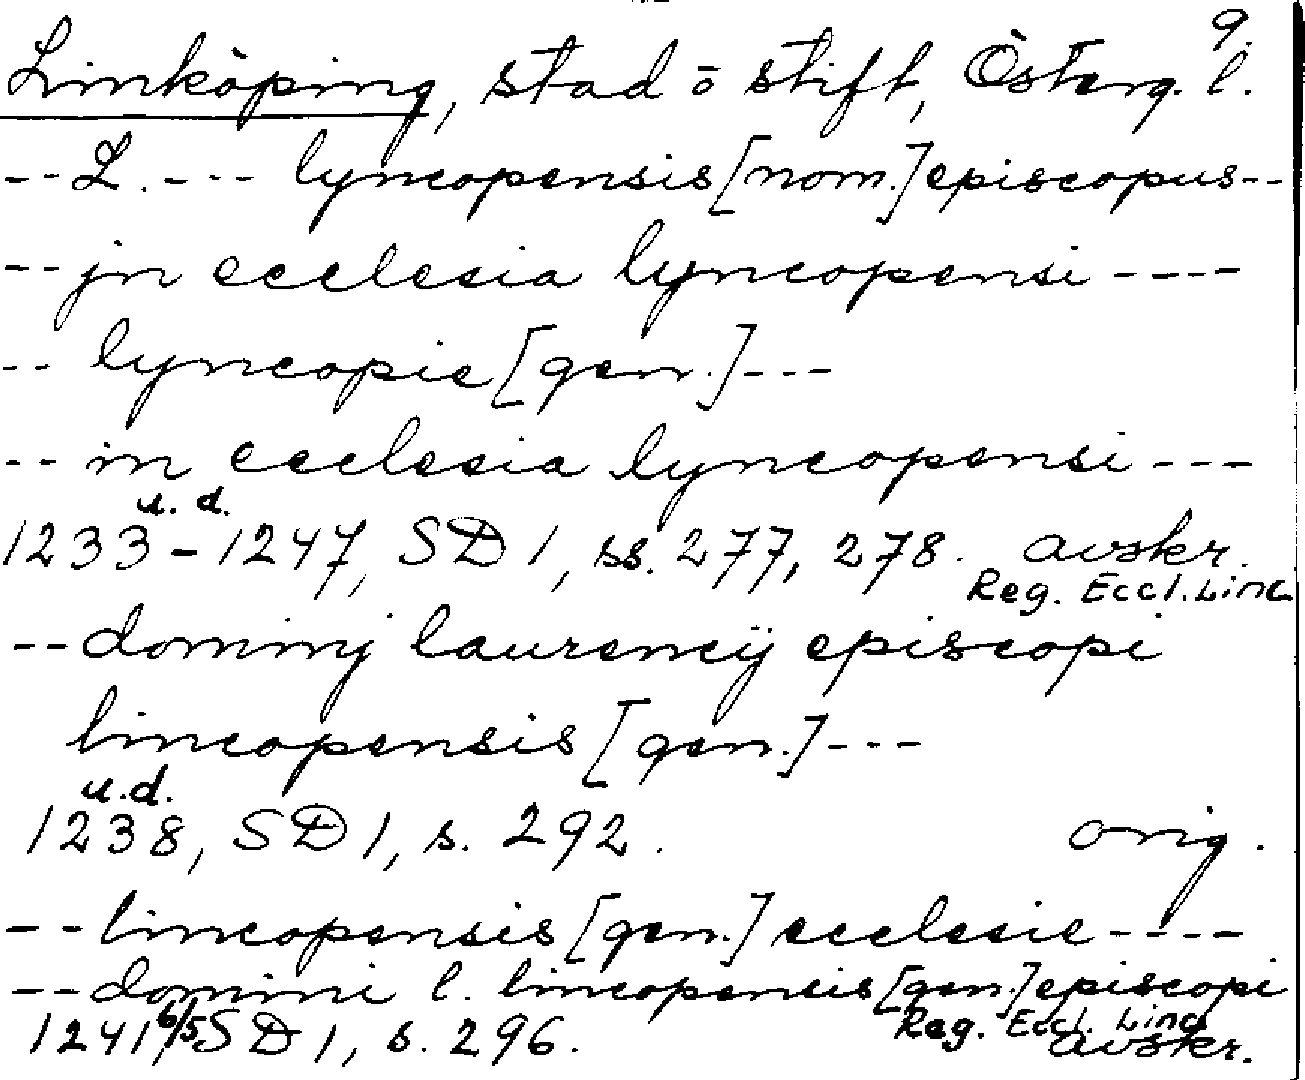 9.
Linköping, stad o stift, Österg. l.
--L.--- lyncopensis [nom.] episcopus--
--jn ecclesia lyncopensi----
-- lyncopie [gen.]---
-- in ecclesia lyncopensi---
u. d.
1233-1247, SD 1, ss. 277, 278. avskr.
Reg. Eccl. Linc
--dominj laurencij episcopi
lincopensis [gen.]---
u.d.
1238, SD 1, s. 292. orig.
--lincopensis [gen.] ecclesie----
--domini l. lincopensis [gen.] episcopi
1241 6/5 SD 1, s. 296. Reg. Eccl. Linc
avskr.